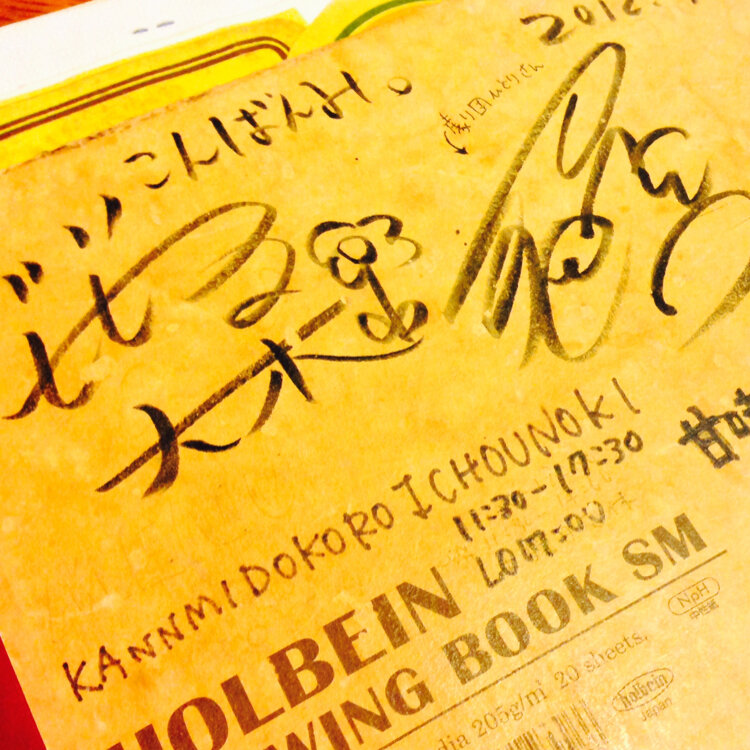 2012.
こんばんみ。
劇団ひとりさん
ビビる
大木
甘味
KANNMIDOKORO ICHOUNOKI
11:30-17:30
LO17:00
HOLBEIN
WING BOOK SM
NpH
中性紙
dia 205g/m² 20 sheets.
holbein
Japan